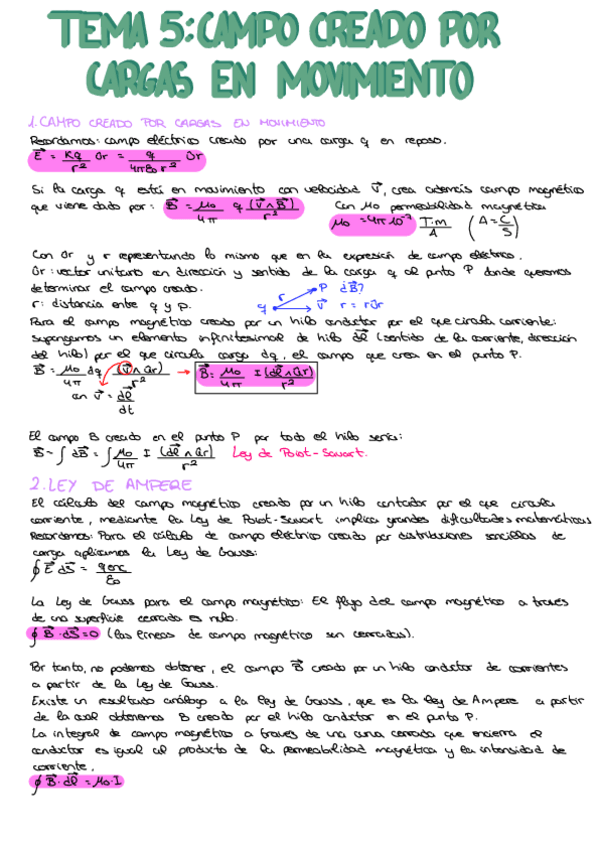 TEMA 5: CAMPO CREADO POR
CARGAS EN MOVIMIENTO
1. CAMPO CREADO POR CARGAS EN MOVIMIENTO
Recordamos: campo eléctrico creado por una carga q en reposo.
E⃗ = Kq/r² ûr = q/4πε₀r² ûr
Si la carga q está en movimiento con velocidad v⃗, crea además campo magnético
que viene dado por: B⃗ = μ₀/4π q (v⃗ ∧ B⃗)/r² Con μ₀ permeabilidad magnética
μ₀ = 4π·10⁻⁷ T·m/A (A = C/S)
Con ûr y r representando lo mismo que en la expresión de campo eléctrico.
ûr: vector unitario en dirección y sentido de la carga q al punto P donde queremos
determinar el campo creado.
r: distancia entre q y p.
q r P ¿B⃗? v⃗ r = r ûr
Para el campo magnético creado por un hilo conductor por el que circula corriente:
supongamos un elemento infinitesimal de hilo dl⃗ (sentido de la corriente, dirección
del hilo) por el que circula carga dq, el campo que crea en el punto P.
B⃗ = μ₀/4π dq (v⃗ ∧ ûr)/r² → B⃗ = μ₀/4π I (dl⃗ ∧ ûr)/r²
con v⃗ = dl⃗/dt
El campo B creado en el punto P por todo el hilo sería:
B⃗ = ∫ dB⃗ = ∫ μ₀/4π I (dl⃗ ∧ ûr)/r² Ley de Biot-Savart.
2. LEY DE AMPERE
El cálculo del campo magnético creado por un hilo contador por el que circula
corriente, mediante la Ley de Biot-Savart implica grandes dificultades matemáticas
Recordemos: Para el cálculo de campo eléctrico creado por distribuciones sencillas de
carga aplicamos la Ley de Gauss:
∮ E⃗ dS⃗ = qenc/ε₀
La Ley de Gauss para el campo magnético: El flujo del campo magnético a través
de una superficie cerrada es nulo.
∮ B⃗ · dS⃗ = 0 (las líneas de campo magnético son cerradas).
Por tanto, no podemos obtener, el campo B⃗ creado por un hilo conductor de corrientes
a partir de la Ley de Gauss.
Existe un resultado análogo a la ley de Gauss, que es la ley de Ampere a partir
de la cual obtenemos B creado por el hilo conductor en el punto P.
La integral de campo magnético a través de una curva cerrada que encierra el
conductor es igual al producto de la permeabilidad magnética y la intensidad de
corriente.
∮ B⃗ · dl⃗ = μ₀ · I